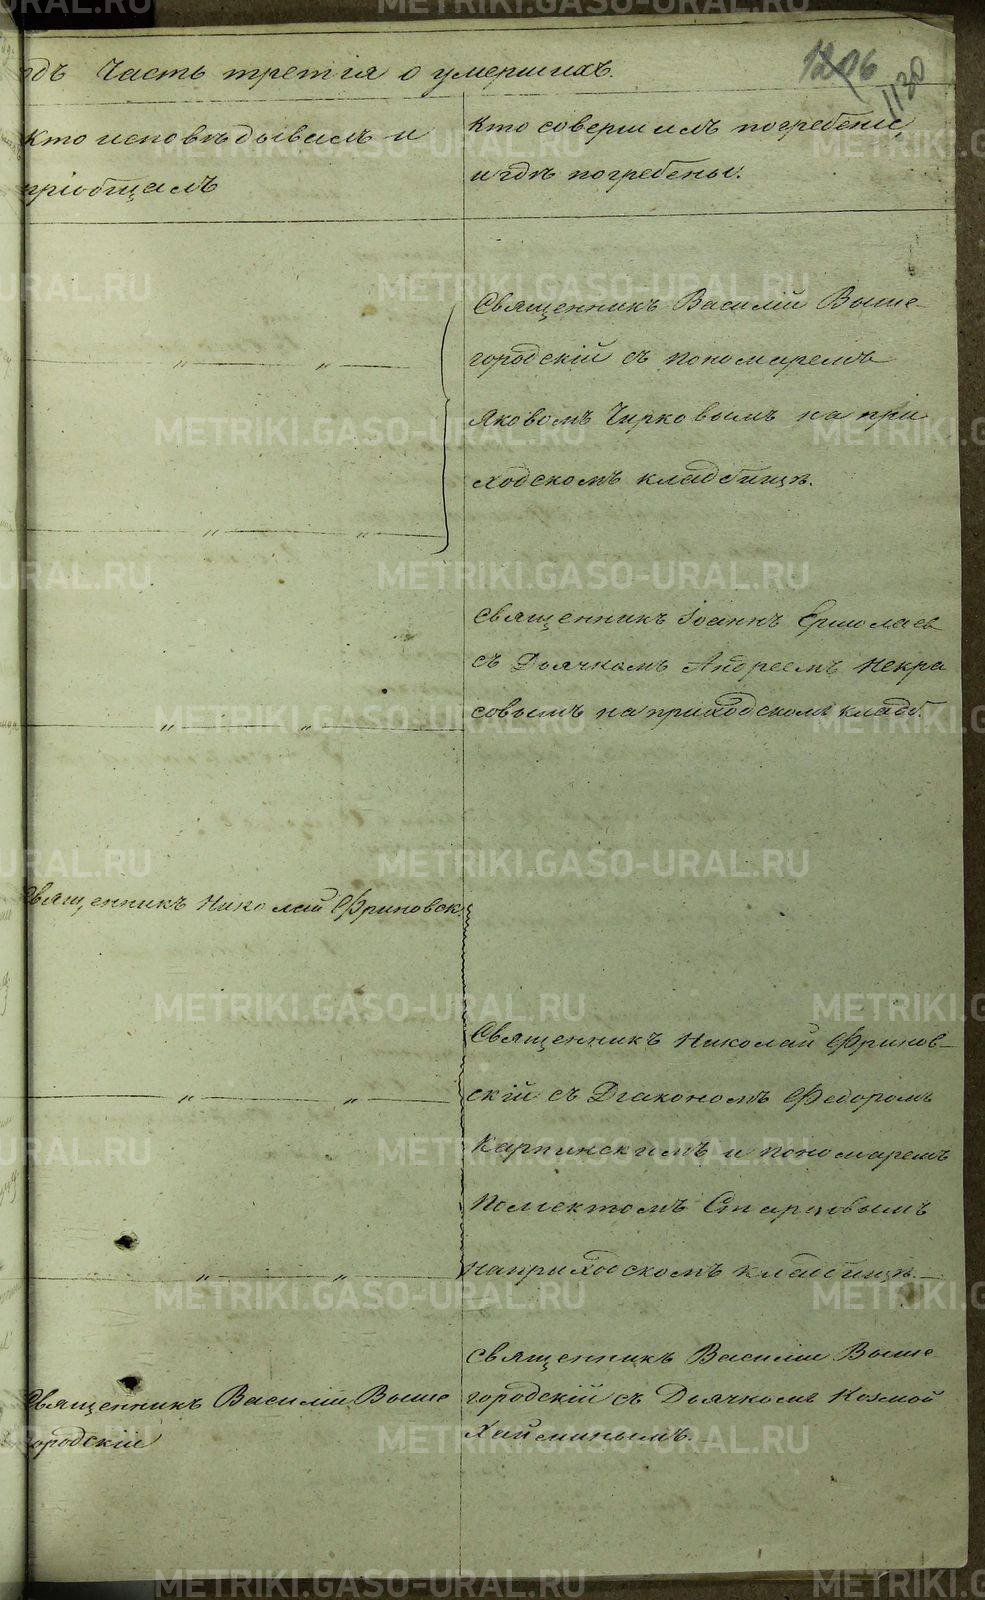 одъ Часть третія о умершихъ.
1206
1130
Кто исповѣдывалъ и
пріобщалъ
Кто совершилъ погребеніе
и гдѣ погребены.
Священникъ Василій Выше-
городскій съ пономаремъ
Яковомъ Чирковымъ на при
ходскомъ кладбищѣ.
Священникъ Іоаннъ Ермолаев
съ Дьячкомъ Андреемъ Некра
совымъ на приходскомъ кладб.
Священникъ Николай Фриновск.
Священникъ Николай Фринов-
скій съ Діакономъ Федоромъ
Карпинскимъ и пономаремъ
Полиектомъ Старцовымъ
на приходскомъ кладбищѣ.
Священникъ Василій Выше
городскій
Священникъ Василій Выше
городскій съ Дьячкомъ Козмой
Хайминымъ.
METRIKI.GASO-URAL.RU